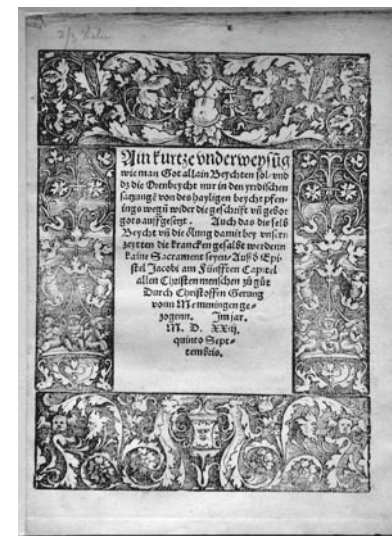 Ain kurtze vnderweysũg
wie man Got allain Beychten sol/ vnd
dz die Orenbeycht nur in den yrdischen
satzungẽ von des hayligen beycht pfen-
nings wegñ wider die geschrift vñ gebot
gots auffgesetzt. Auch das die selb
Beycht vñ die ölung damit bey vnsern
zeytten die krancken gesalbt werdenn
kaine Sacrament seyen/ Auß ð Epi-
stel Jacobi am Fünfften Capitel
allen Christen menschen zů gůt
Durch Christoffen Gerung
vonn Memmingen ge-
zogenn. Im jar.
M. D. XXiij.
quinto Sept-
tembris.